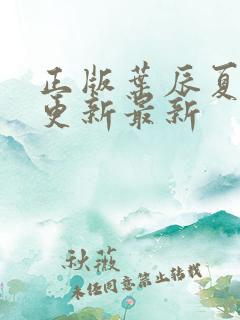 正版葉辰夏
更新最新
秋薇
未经同意禁止转载